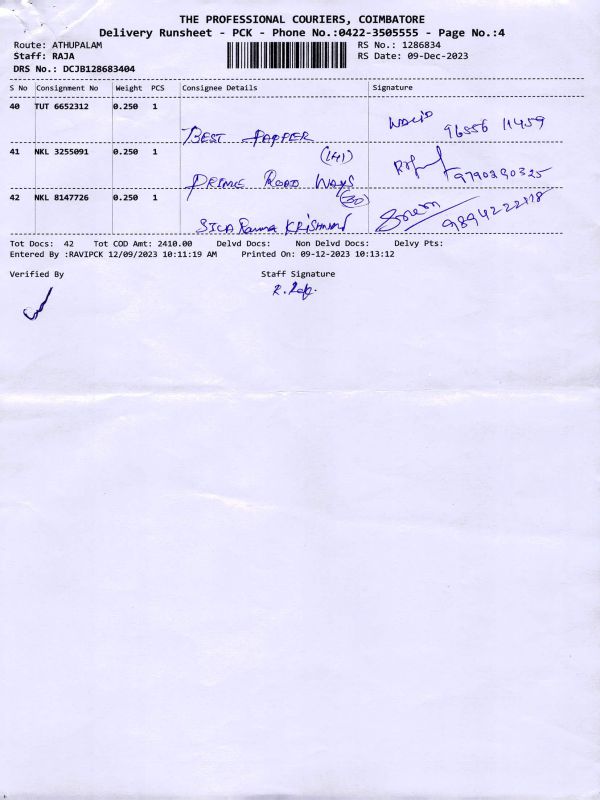 THE PROFESSIONAL COURIERS, COIMBATORE
Delivery Runsheet - PCK - Phone No.:0422-3505555 - Page No.:4
Route: ATHUPALAM RS No.: 1286834
Staff: RAJA RS Date: 09-Dec-2023
DRS No.: DCJB128683404
S No Consignment No Weight PCS Consignee Details Signature
40 TUT 6652312 0.250 1
BEST PAPPER 96556 11459
41 NKL 3255091 0.250 1 (141)
PRIME ROAD WAYS 9790290325
42 NKL 8147726 0.250 1 (30)
SICA Rama KRISHNAN 9894222118
Tot Docs: 42 Tot COD Amt: 2410.00 Delvd Docs: Non Delvd Docs: Delvy Pts:
Entered By :RAVIPCK 12/09/2023 10:11:19 AM Printed On: 09-12-2023 10:13:12
Verified By Staff Signature